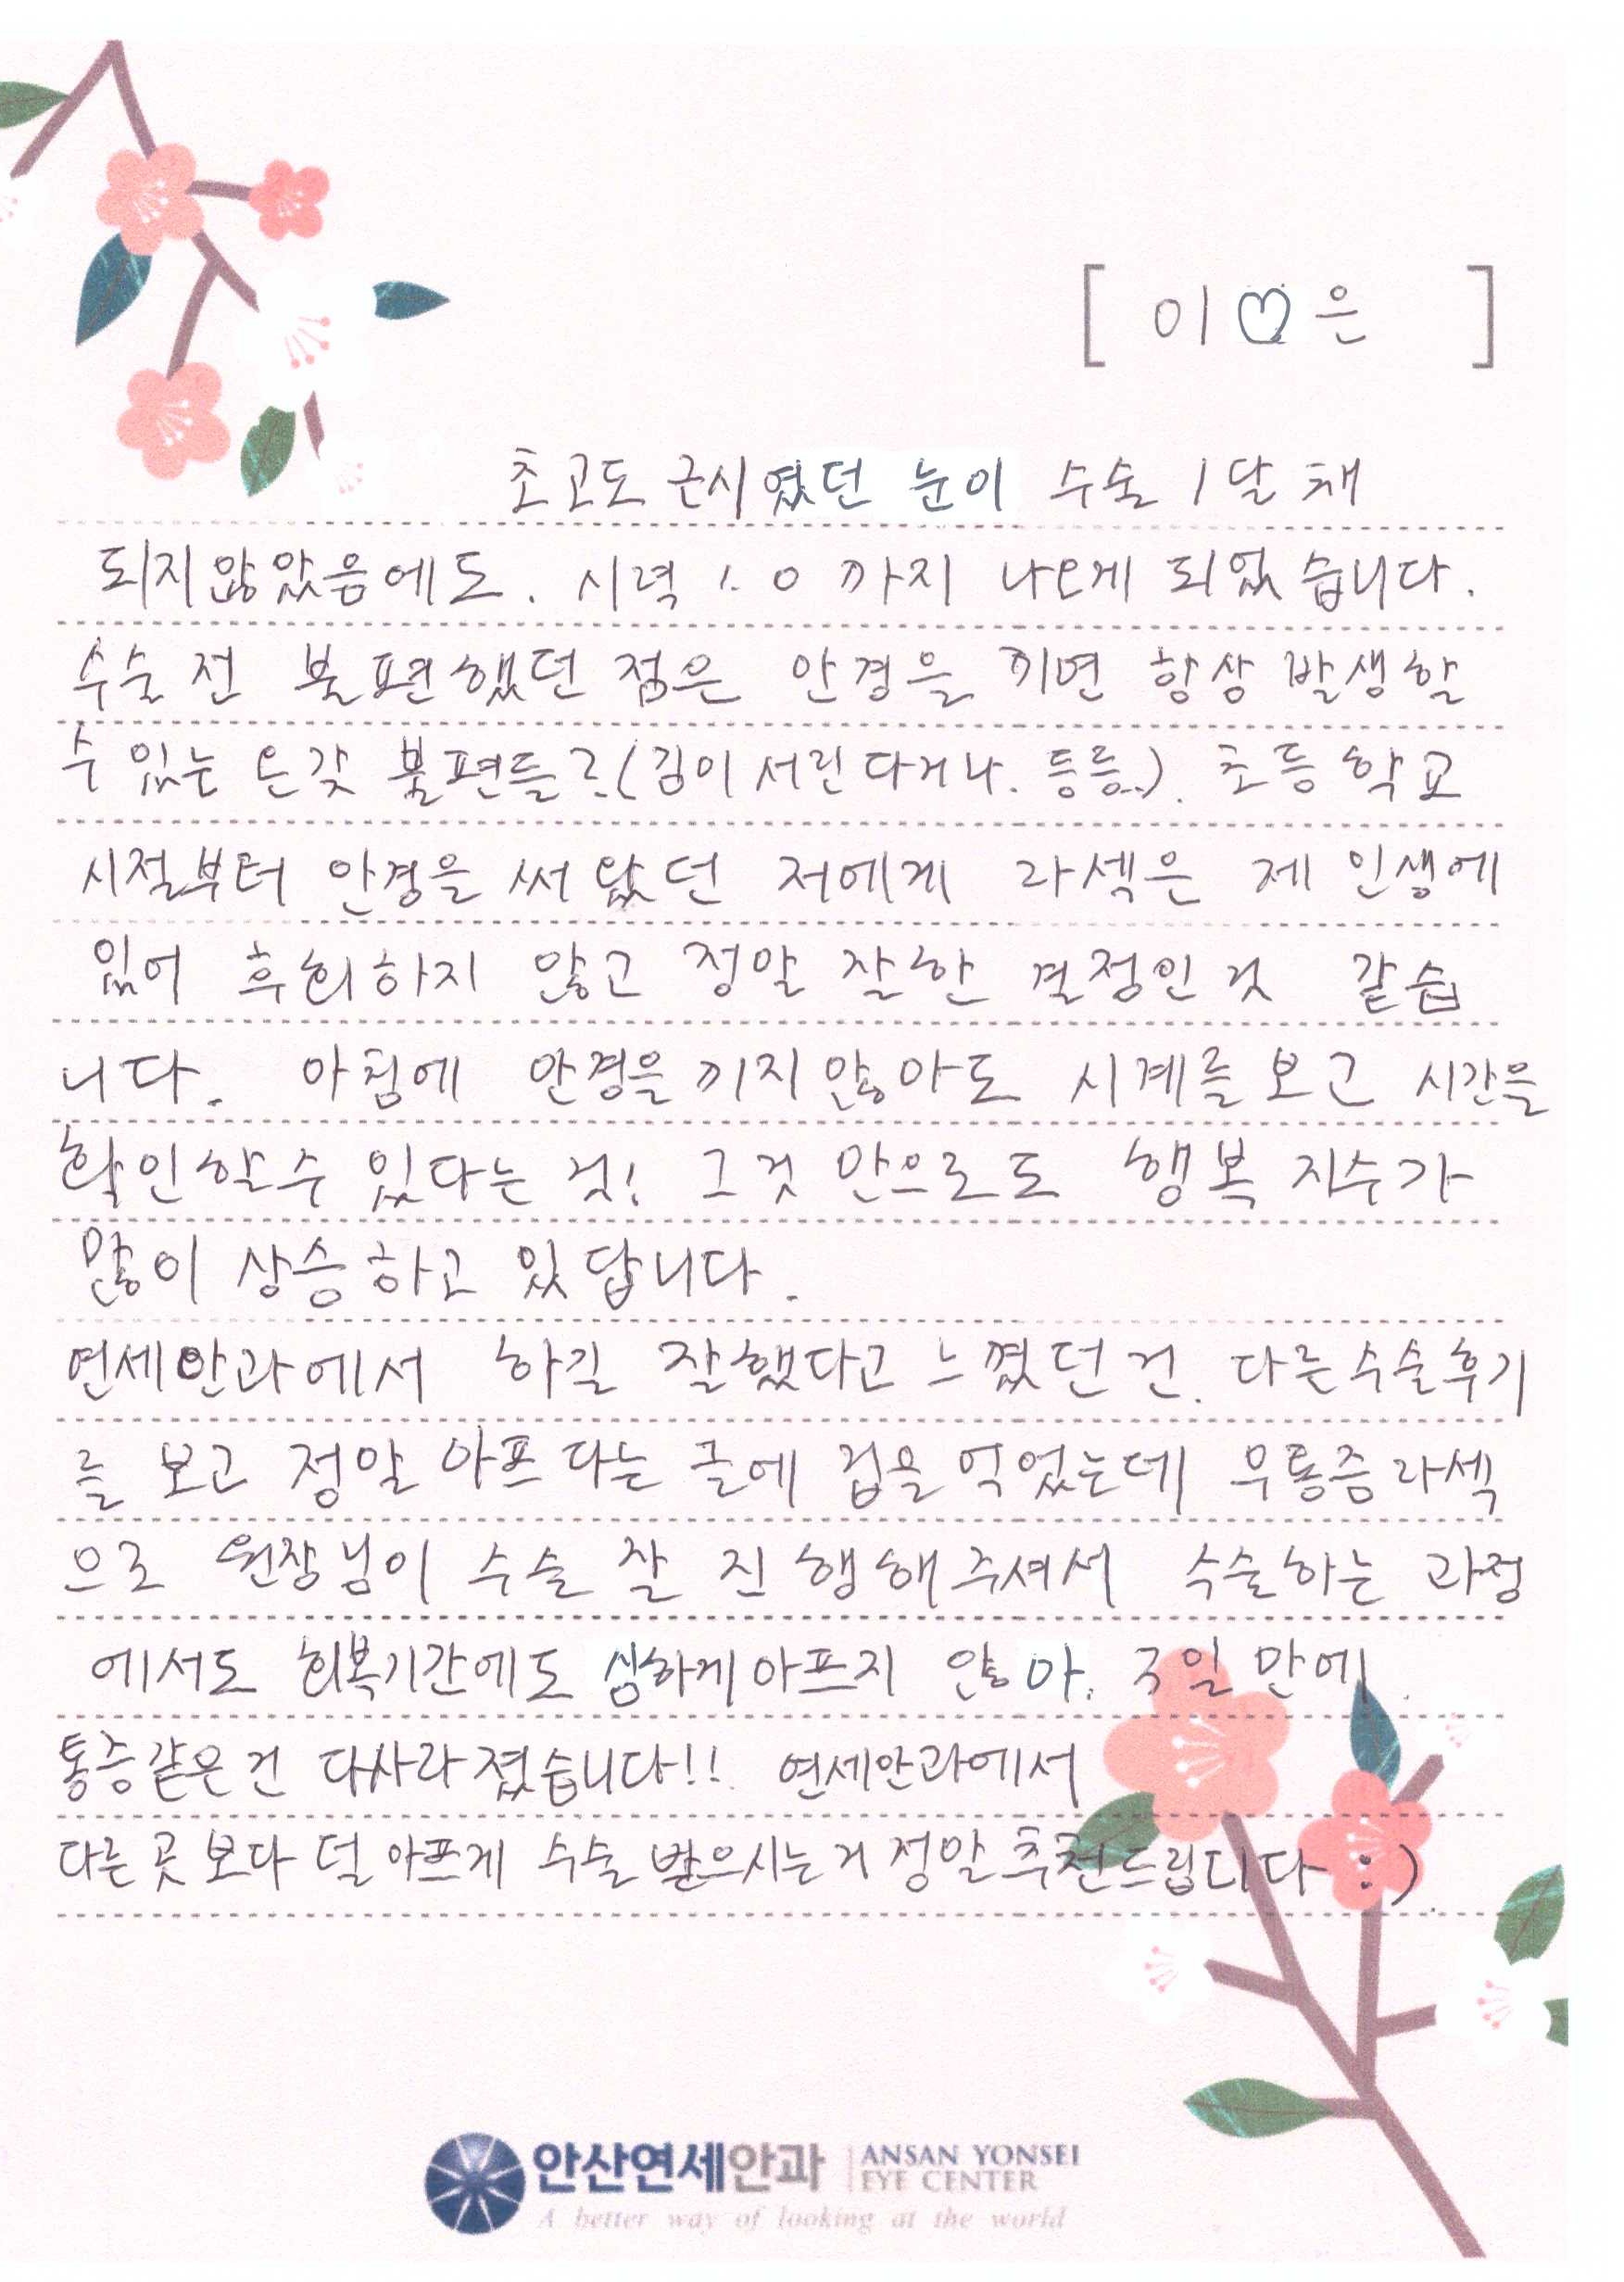 [ 이♡은 ]
초고도 근시였던 눈이 수술 1달 채
되지않았음에도. 시력 1.0 까지 나오게 되었습니다.
수술 전 불편했던 점은 안경을 끼면 항상 발생할
수 있는 온갖 불편들?(김이 서린다거나. 등등..). 초등학교
시절부터 안경을 써 왔던 저에게 라섹은 제 인생에
있어 후회하지 않고 정말 잘한 결정인 것 같습
니다. 아침에 안경을 끼지 않아도 시계를 보고 시간을
확인할 수 있다는 것! 그것 만으로도 행복 지수가
많이 상승하고 있답니다.
연세안과에서 하길 잘했다고 느꼈던 건. 다른 수술후기
를 보고 정말 아프다는 글에 겁을 먹었는데 무통증라섹
으로 원장님이 수술 잘 진행해주셔서 수술하는 과정
에서도 회복기간에도 심하게 아프지 않아. 3일 만에.
통증같은 건 다사라졌습니다!! 연세안과에서
다른 곳 보다 덜 아프게 수술 받으시는거 정말 추천드립니다 :)
안산연세안과 | ANSAN YONSEI
EYE CENTER
A better way of looking at the world